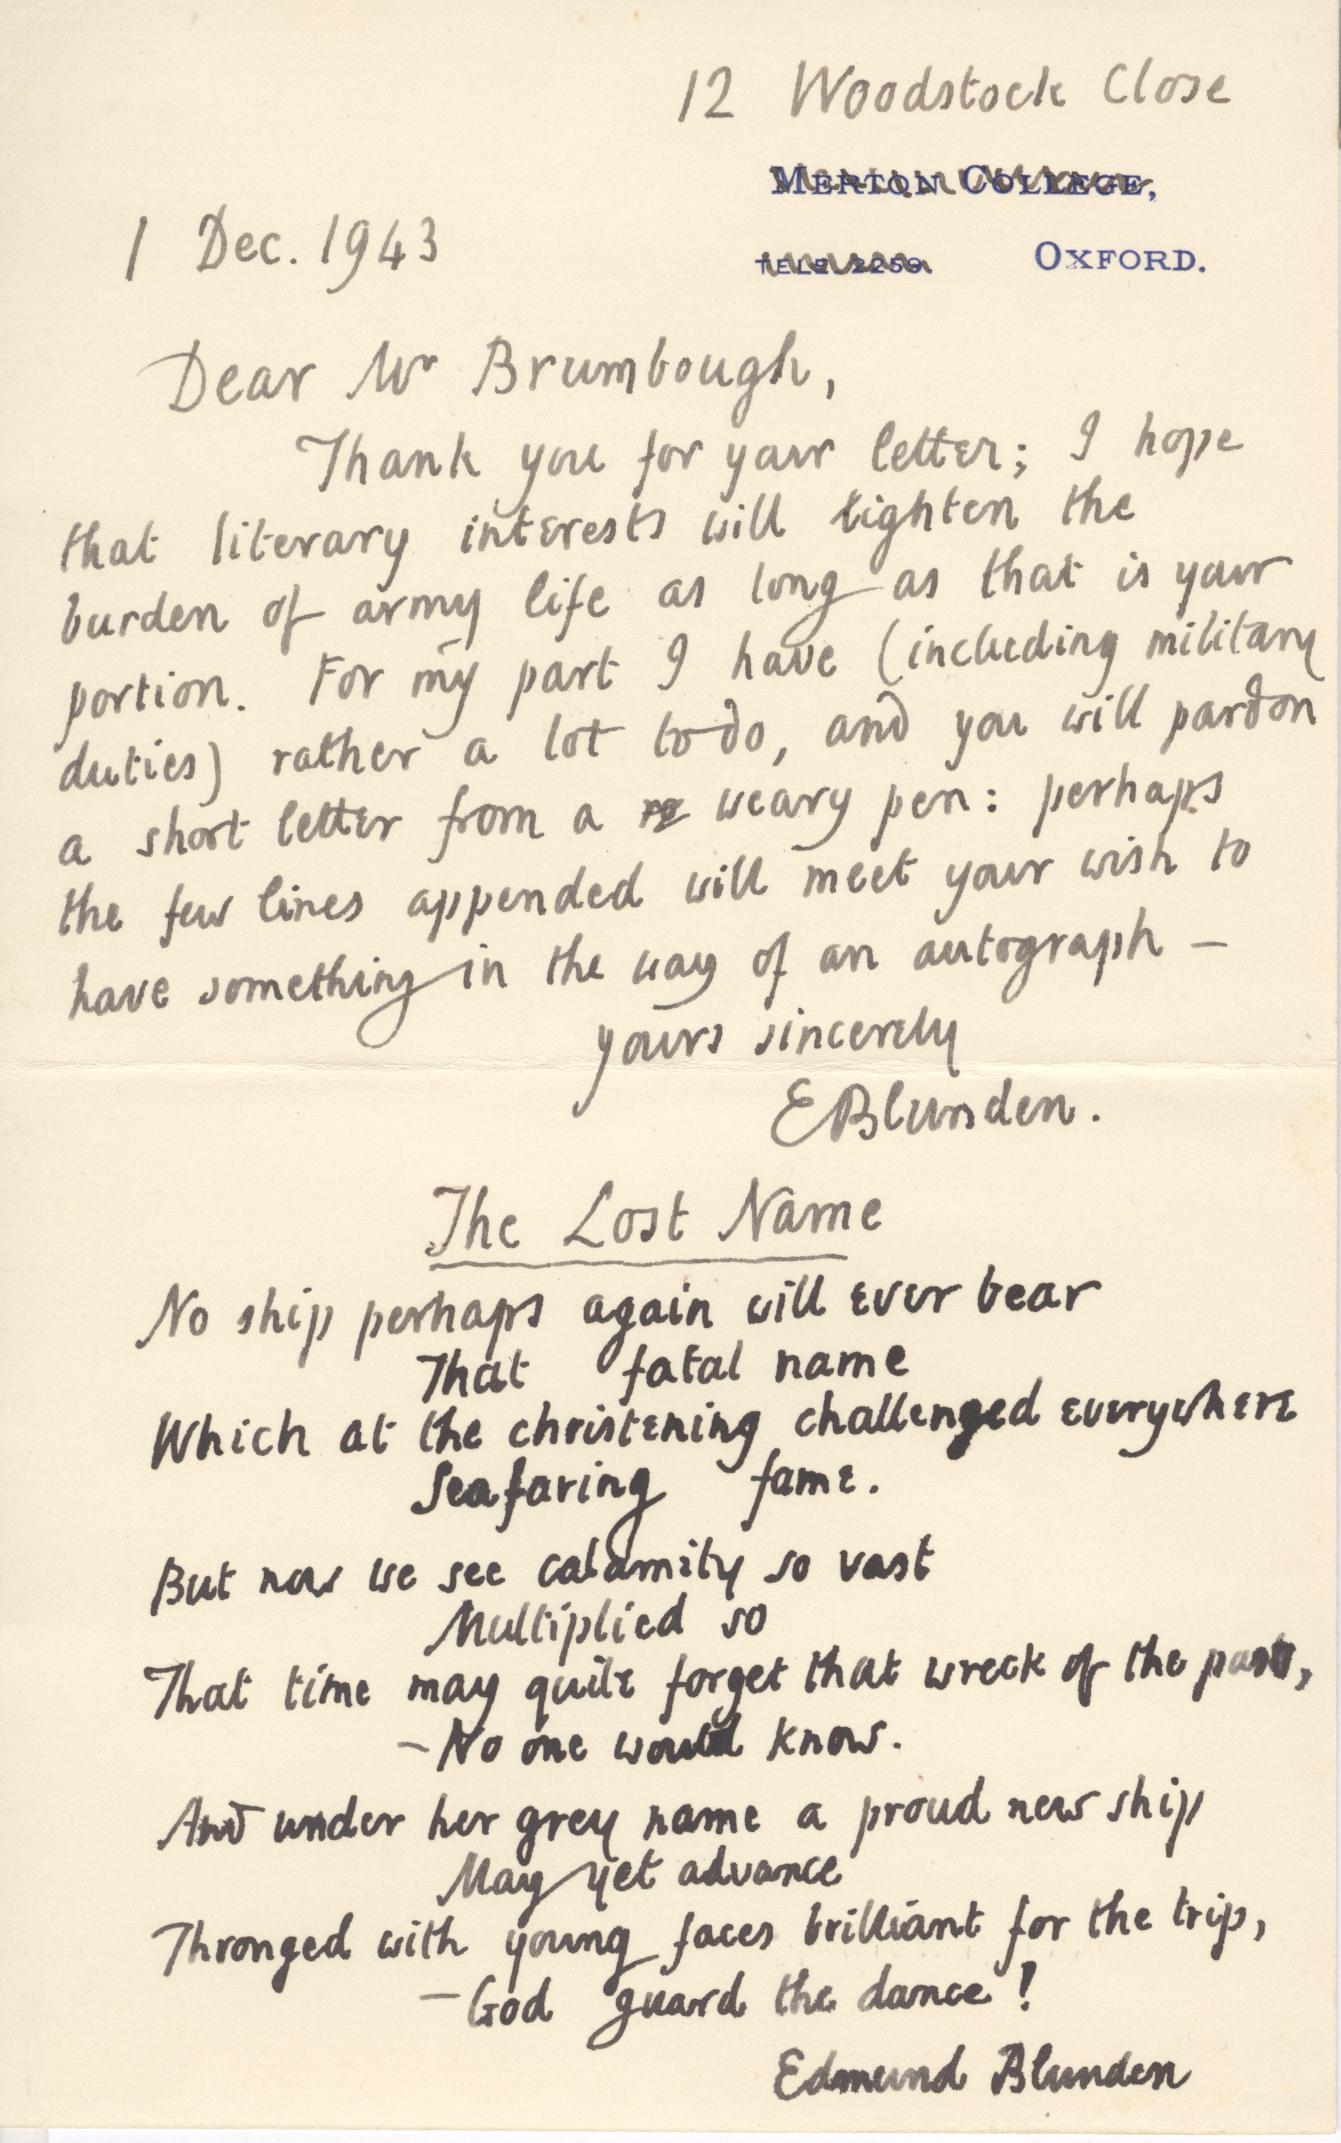 12 Woodstock Close
MERTON COLLEGE,
1 Dec. 1943
TELE 2259. OXFORD.
Dear Mr Brumbough,
Thank you for your letter; I hope
that literary interests will lighten the
burden of army life as long as that is your
portion. For my part I have (including military
duties) rather a lot to do, and you will pardon
a short letter from a weary pen: perhaps
the few lines appended will meet your wish to
have something in the way of an autograph –
yours sincerely
EBlunden.
The Lost Name
No ship perhaps again will ever bear
That fatal name
Which at the christening challenged everywhere
Seafaring fame.
But now we see calamity so vast
Multiplied so
That time may quite forget that wreck of the past,
– No one would know.
And under her grey name a proud new ship
May yet advance
Thronged with young faces brilliant for the trip,
– God guard the dance!
Edmund Blunden